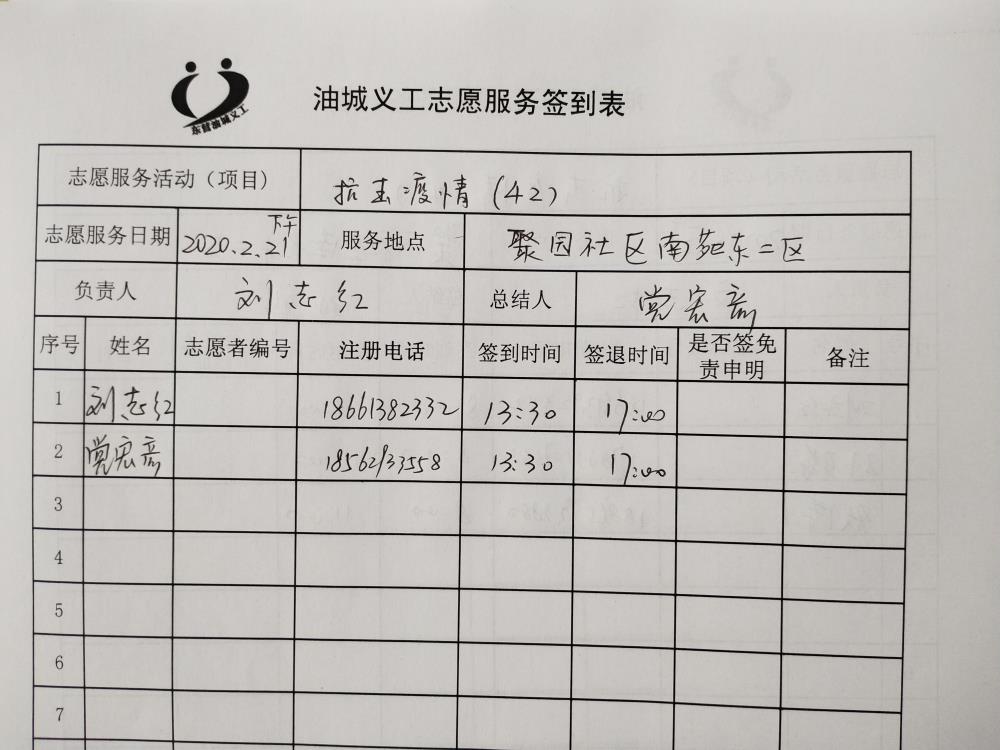 东营油城义工
油城义工志愿服务签到表
志愿服务活动（项目） 抗击疫情（42）
志愿服务日期 2020.2.21 下午 服务地点 聚园社区南苑东二区
负责人 刘志红 总结人 党宏亮
序号 姓名 志愿者编号 注册电话 签到时间 签退时间 是否签免责申明 备注
1 刘志红 18661382332 13:30 17:00
2 党宏亮 18562933558 13:30 17:00
3
4
5
6
7